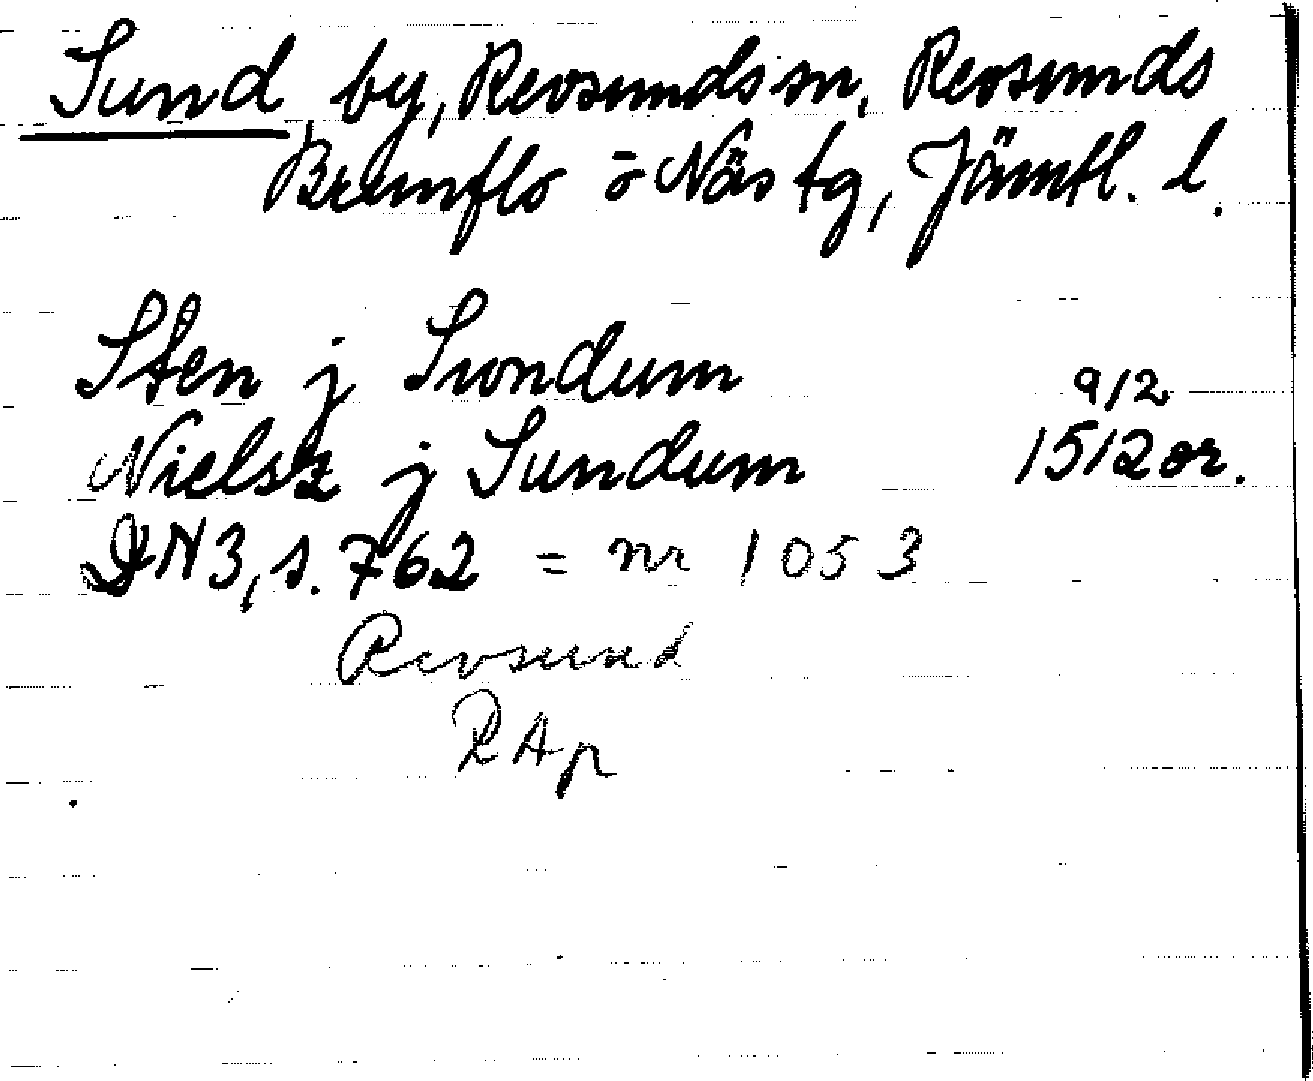 Sund by, Revsunds sn, Revsunds
Brunflo o Näs tg, Jämtl. l.
Sten j Swondum 9/2
Nielsz j Sundum 1512 or.
DN 3, s. 762 = nr 1053
Revsund
RAp